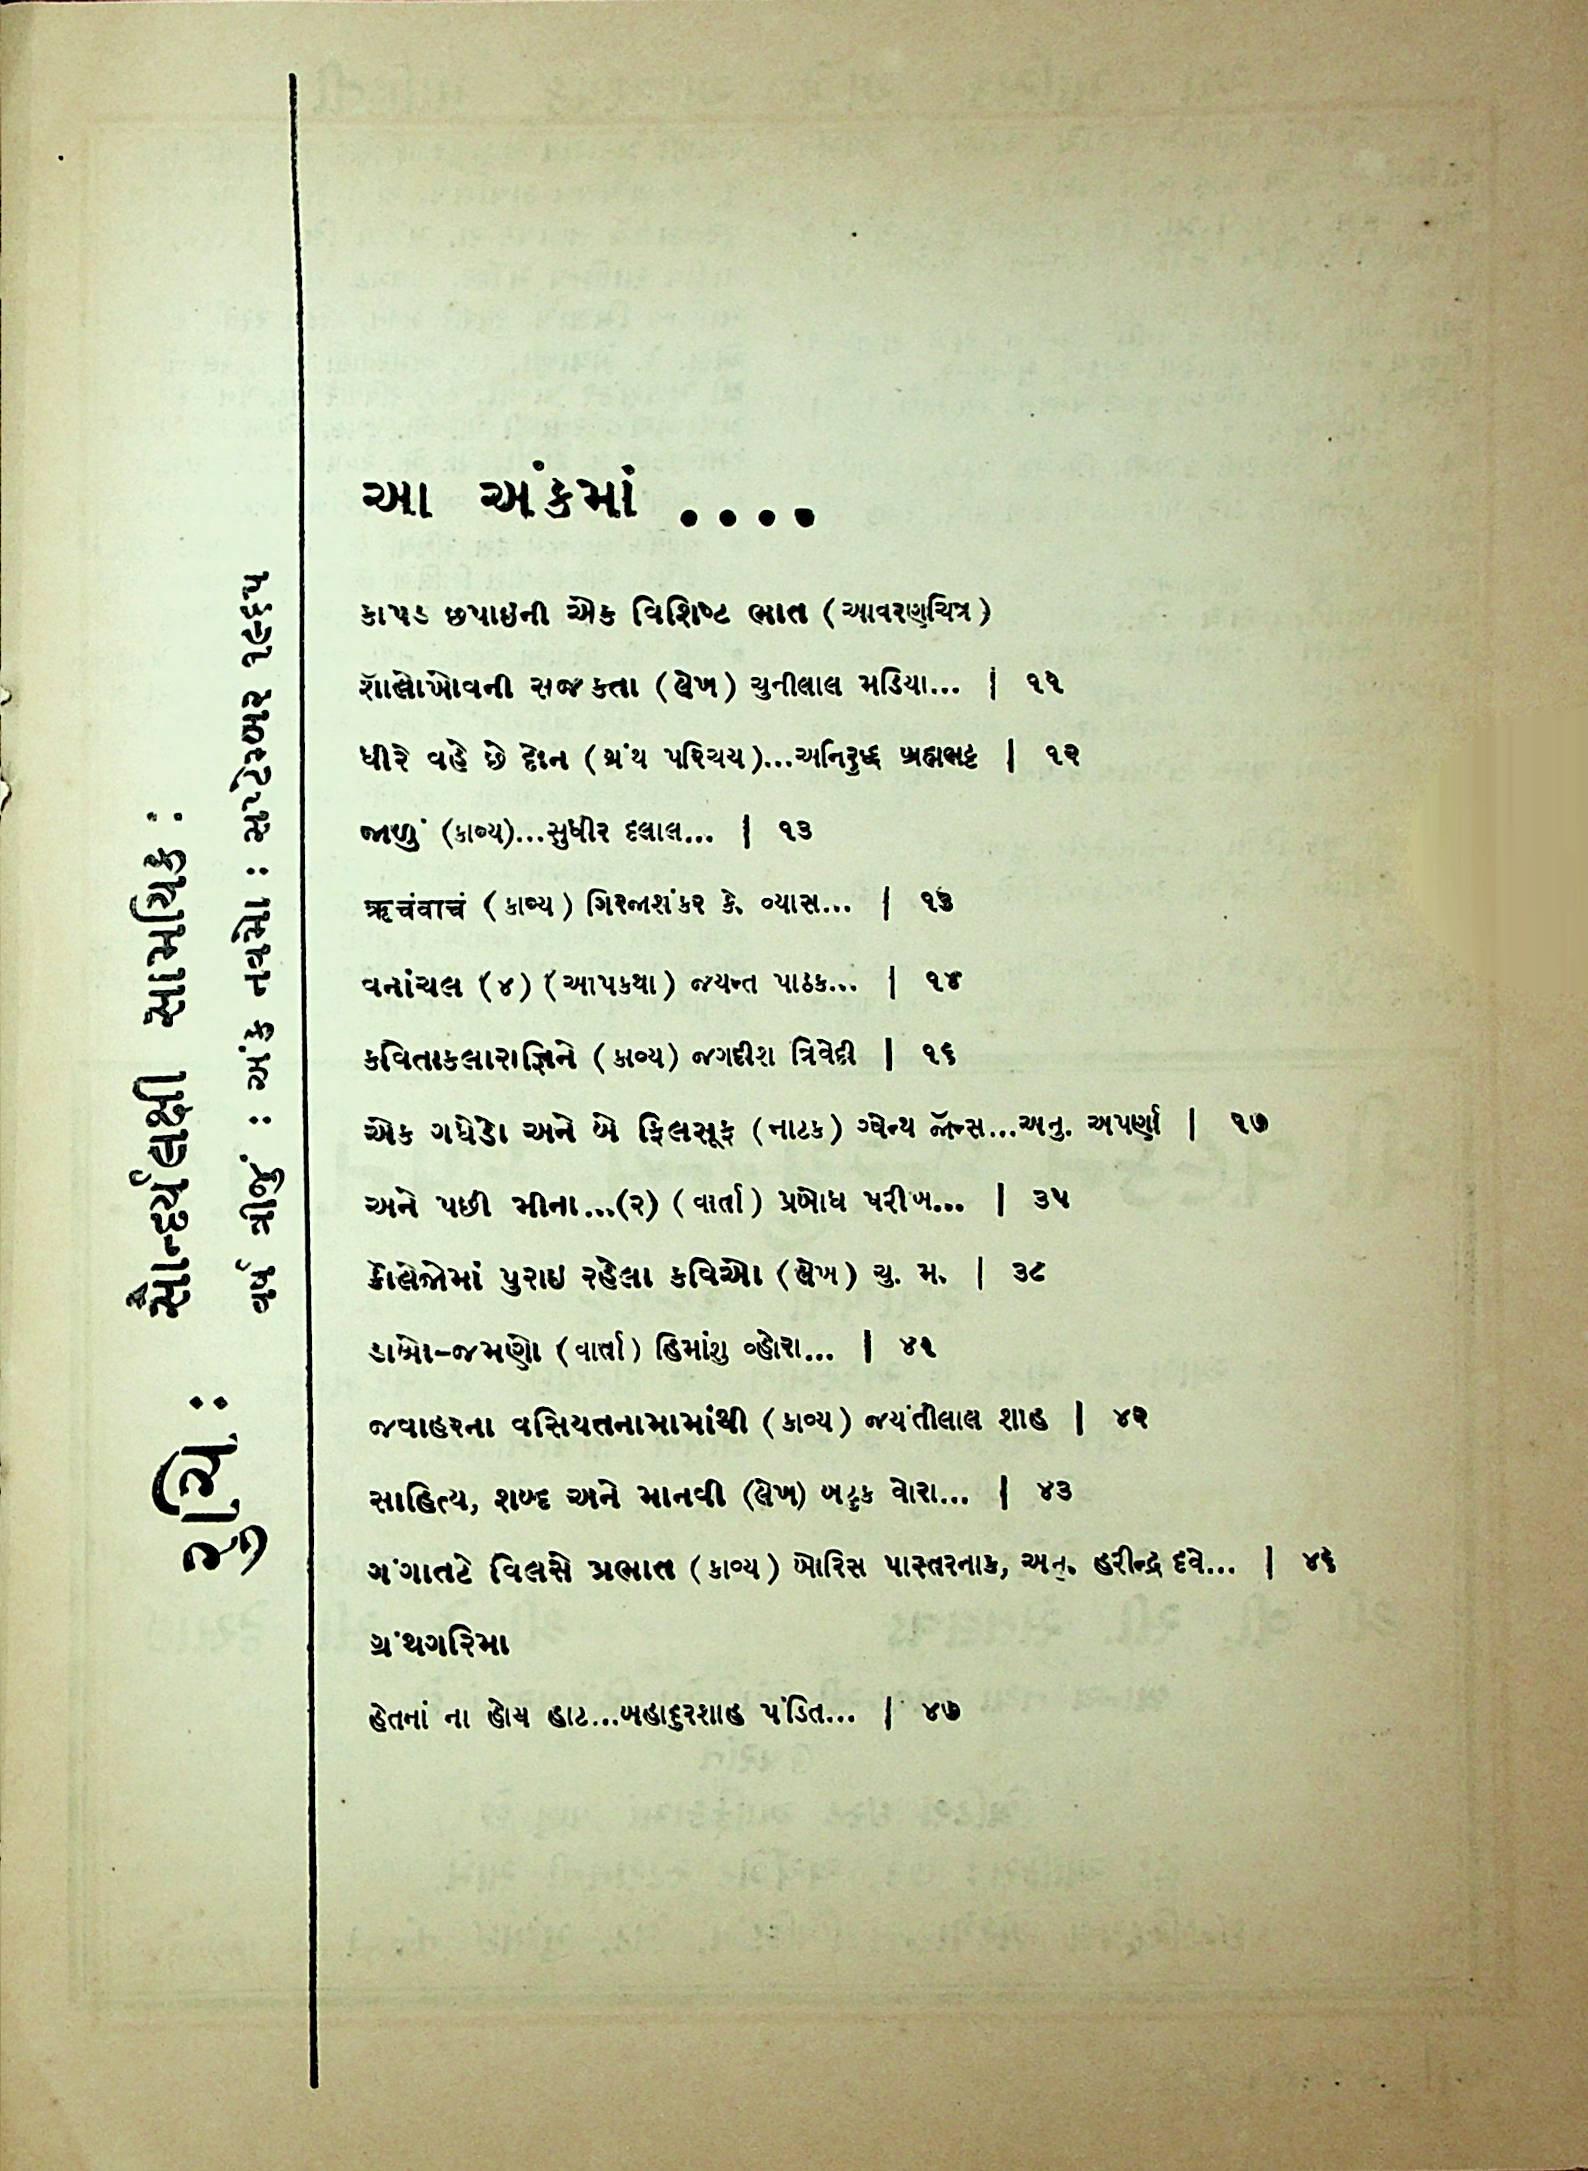 રુચિ : સૌન્દર્યલક્ષી સામયિક :
વર્ષ ત્રીજું : અંક નવમો : સપ્ટેમ્બર ૧૯૬૫
આ અંકમાં ....
કાપડ છપાઇની એક વિશિષ્ટ ભાત (આવરણચિત્ર)
શૉલોખોવની સજકતા (લેખ) ચુનીલાલ મડિયા... | ૧૧
ધીરે વહે છે દોન (ગ્રંથ પરિચય)...અનિરુદ્ધ બ્રહ્મભટ્ટ | ૧૨
જાળું (કાવ્ય)...સુધીર દલાલ... | ૧૩
ઋચંવાચં (કાવ્ય) ગિરજાશંકર કે. વ્યાસ... | ૧૩
વનાંચલ (૪) (આપકથા) જયન્ત પાઠક... | ૧૪
કવિતાકલારાજ્ઞિને (કાવ્ય) જગદીશ ત્રિવેદી | ૧૬
એક ગધેડો અને બે ફિલસૂફ (નાટક) ગ્વેન્થ જૉન્સ...અનુ. અપર્ણા | ૧૭
અને પછી મીના...(૨) (વાર્તા) પ્રબોધ પરીખ... | ૩૫
કૉલેજોમાં પુરાઇ રહેલા કવિઓ (લેખ) ચુ. મ. | ૩૮
ડાબો-જમણો (વાર્તા) હિમાંશુ વ્હોરા... | ૪૧
જવાહરના વસિયતનામામાંથી (કાવ્ય) જયંતીલાલ શાહ | ૪૨
સાહિત્ય, શબ્દ અને માનવી (લેખ) બટુક વોરા... | ૪૩
ગંગાતટે વિલસે પ્રભાત (કાવ્ય) બોરિસ પાસ્તરનાક, અનુ. હરીન્દ્ર દવે... | ૪૬
ગ્રંથગરિમા
હેતનાં ના હોય હાટ...બહાદુરશાહ પંડિત... | ૪૭